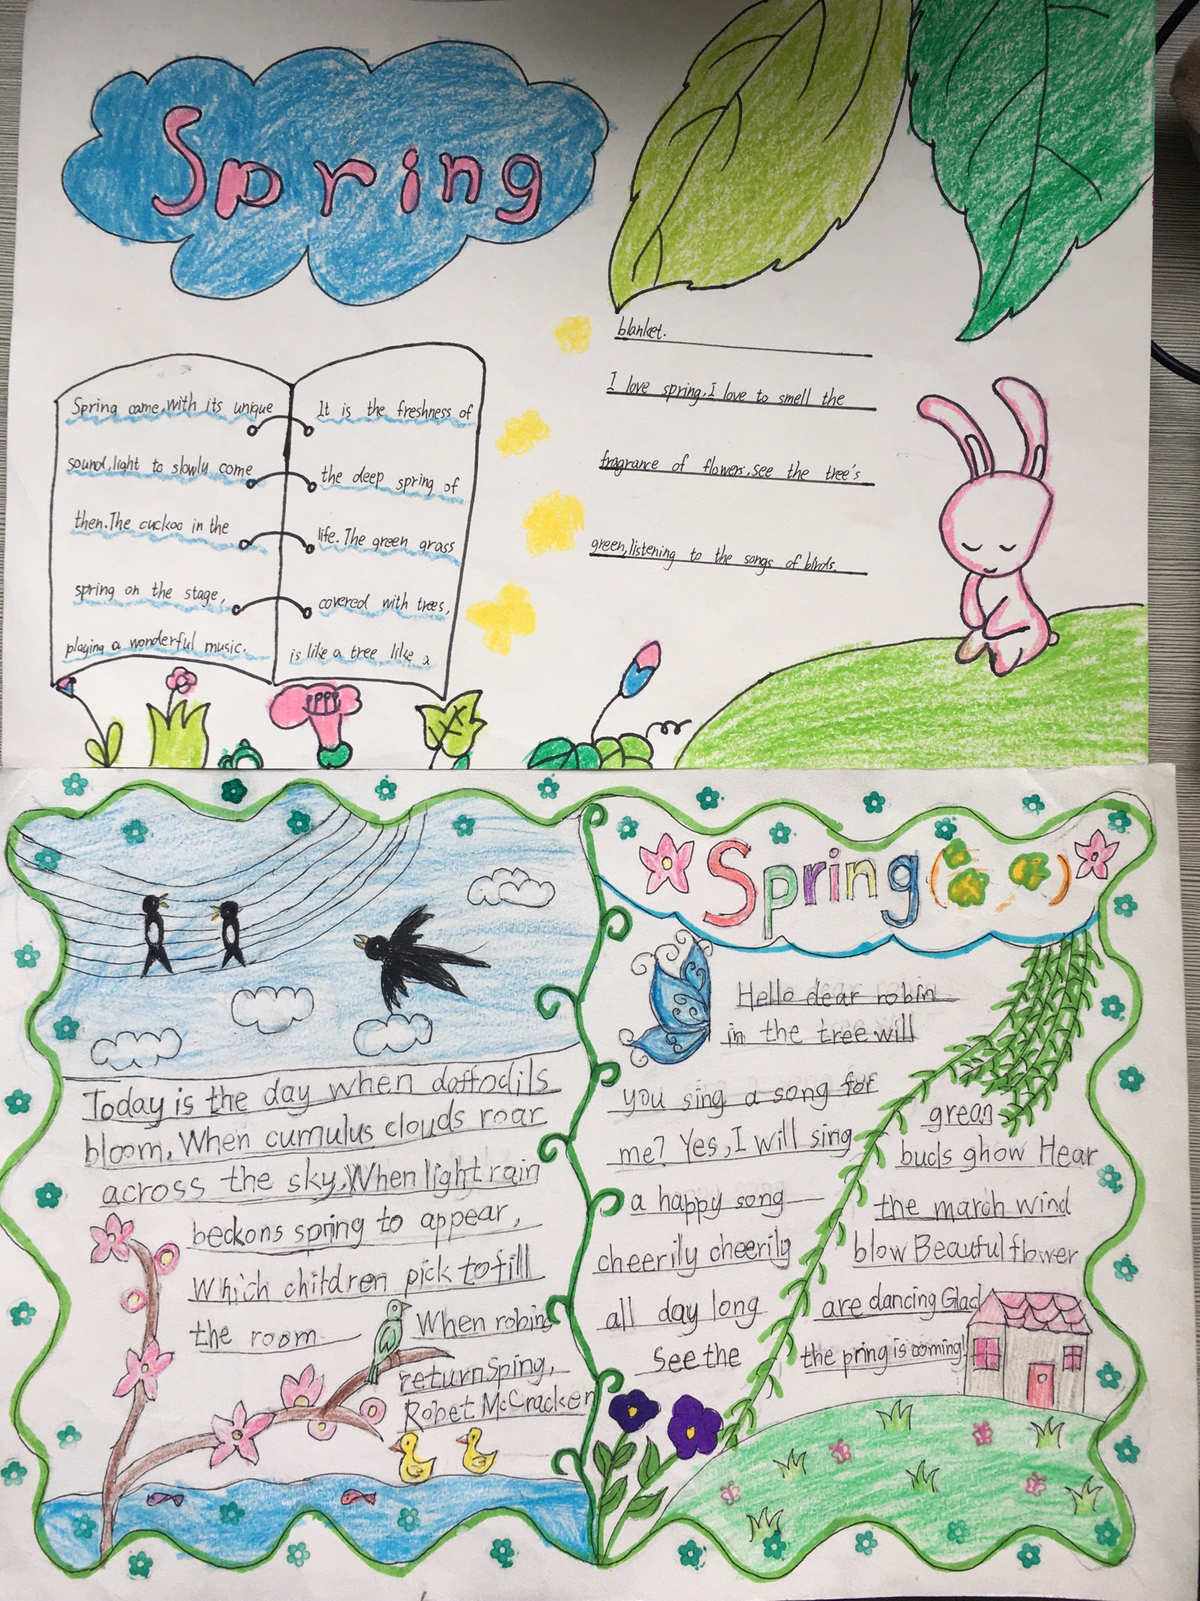 Spring
Spring came,with its unique
sound,light to slowly come
then.The cuckoo in the
spring on the stage,
playing a wonderful music.
It is the freshness of
the deep spring of
life.The green grass
covered with trees,
is like a tree like a
blanket.
I love spring.I love to smell the
fragrance of flowers.see the tree's
green,listening to the songs of birds.
Today is the day when daffodils
bloom,When cumulus clouds roar
across the sky,When light rain
beckons spring to appear,
Which children pick to fill
the room
When robins
return Sping,
Robet McCracken
Spring
Hello dear robin
in the tree will
you sing a song for
me? Yes,I will sing
a happy song
cheerily cheerily
all day long
See the
grean
buds ghow Hear
the march wind
blow Beautuful flower
are dancing Glad
the pring is coming!